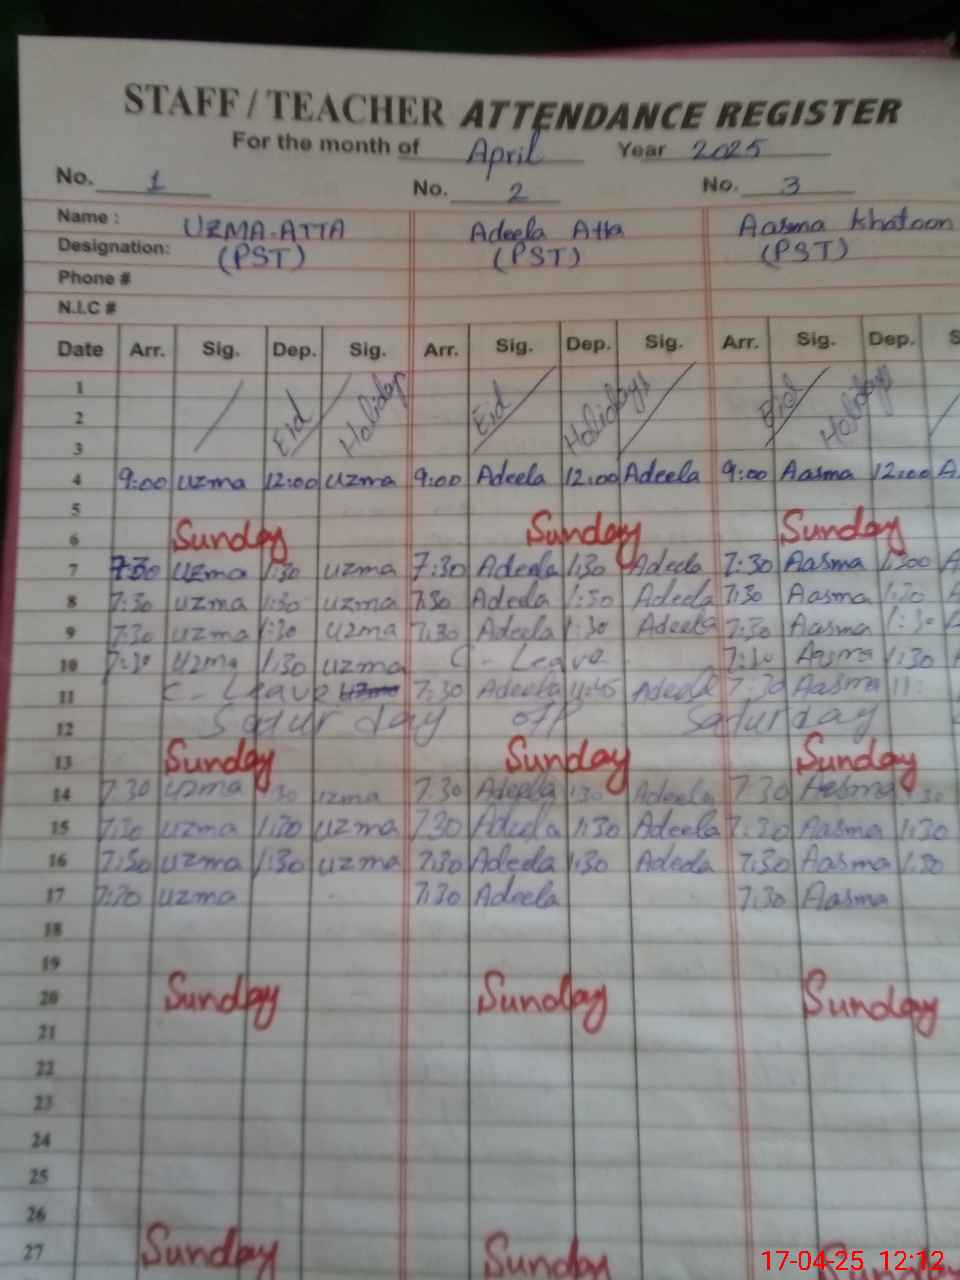 STAFF / TEACHER ATTENDANCE REGISTER
For the month of April Year 2025
No. 1 No. 2 No. 3
Name : UZMA-ATTA Adeela Atta Aasma Khatoon
Designation: (PST) (PST) (PST)
Phone #
N.I.C #
Date Arr. Sig. Dep. Sig. Arr. Sig. Dep. Sig. Arr. Sig. Dep. S
1
2 Eid Holidays Eid Holidays Eid Holidays
3
4 9:00 Uzma 12:00 Uzma 9:00 Adeela 12:00 Adeela 9:00 Aasma 12:00 A
5
6 Sunday Sunday Sunday
7 7:30 Uzma 1:30 Uzma 7:30 Adeela 1:30 Adeela 7:30 Aasma A
8 7:30 Uzma 1:30 Uzma 7:30 Adeela 1:30 Adeela 7:30 Aasma 1:30 A
9 7:30 Uzma 1:30 Uzma 7:30 Adeela 1:30 Adeela 7:30 Aasma 1:30 A
10 7:30 Uzma 1:30 Uzma C-Leave 7:30 Aasma 1:30 A
11 C-Leave Uzma 7:30 Adeela 11:45 Adeela 7:30 Aasma 11:
12 Saturday off Saturday
13 Sunday Sunday Sunday
14 7:30 Uzma 30 Uzma 7:30 Adeela 1:30 Adeela 7:30 Aasma 1:30
15 7:30 Uzma 1:30 Uzma 7:30 Adeela 1:30 Adeela 7:30 Aasma 1:30
16 7:30 Uzma 1:30 Uzma 7:30 Adeela 1:30 Adeela 7:30 Aasma 1:30
17 7:30 Uzma 7:30 Adeela 7:30 Aasma
18
19
20 Sunday Sunday Sunday
21
22
23
24
25
26
27 Sunday Sunday Sunday
17-04-25 12:12